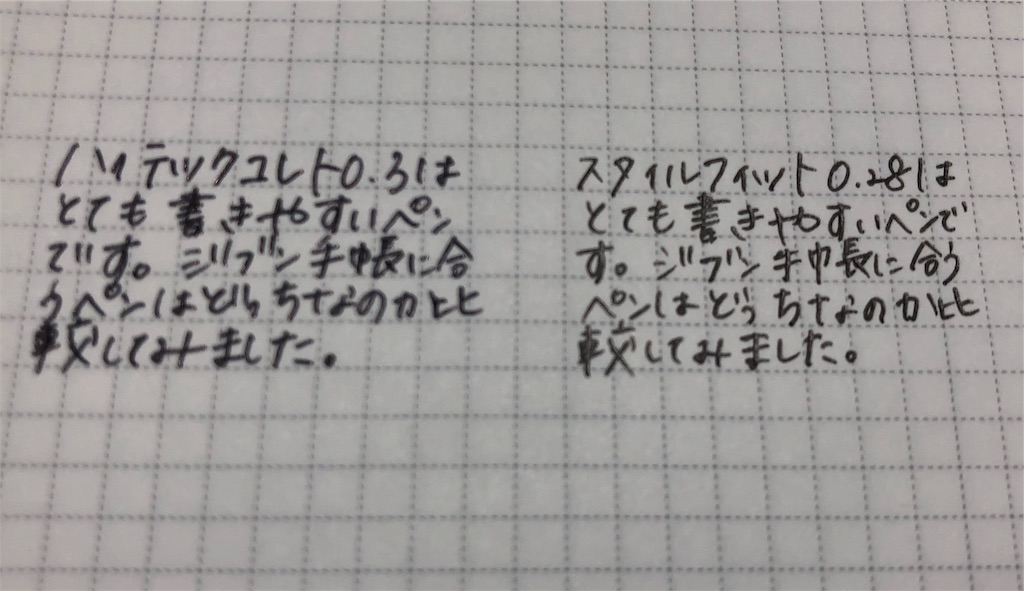 ハイテックコレト0.3は
とても書きやすいペン
です。ジブン手帳に合
うペンはどっちなのか比
較してみました。
スタイルフィット0.28は
とても書きやすいペンで
す。ジブン手帳に合う
ペンはどっちなのか比
較してみました。